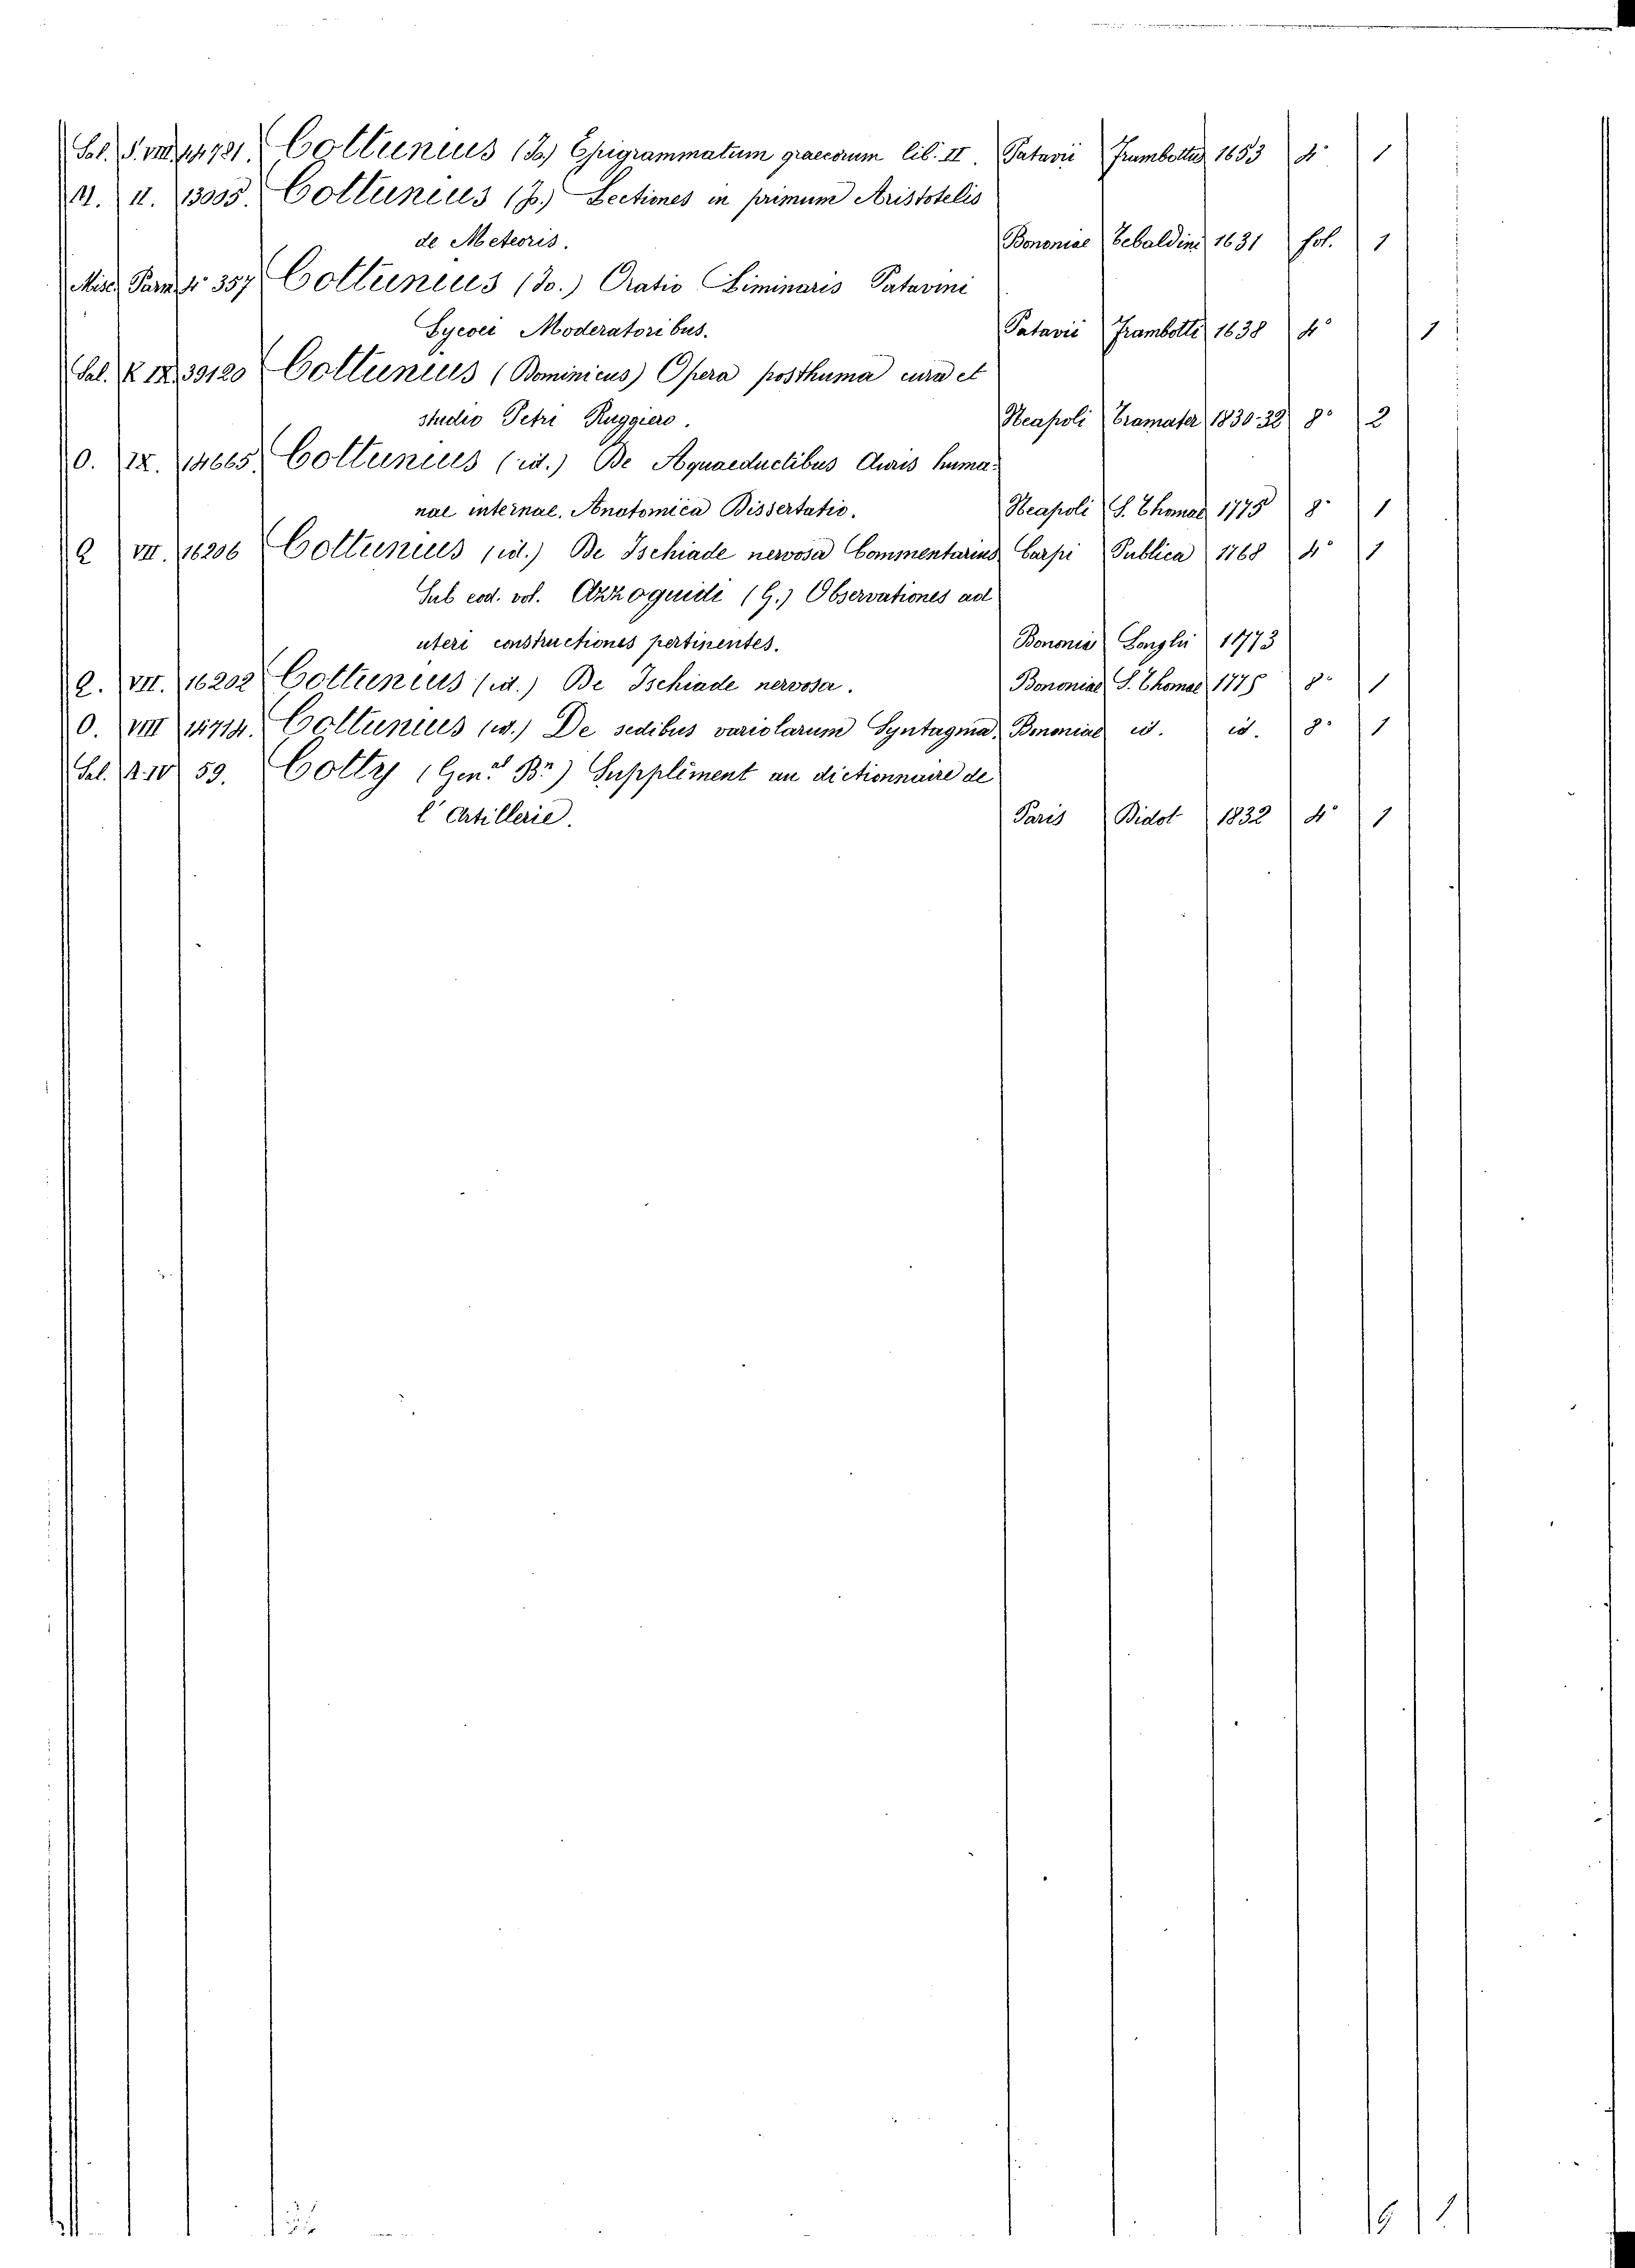 Sal. S. VIII. 14781. Cottunius (Jo.) Epigrammatum graecorum lib. II. Patavii Frambottus 1653 4° 1
M. II. 13095. Cottunius (Jo.) Lectiones in primum Aristotelis
de Meteoris. Bononiae Tebaldini 1631 fol. 1
Misc. Parm. 4° 357 Cottunius (Jo.) Oratio Liminaris Patavini
Lycoei Moderatoribus. Patavii Frambotti 1638 4° 1
Sal. K IX 39120 Cottunius (Dominicus) Opera posthuma cura et
studio Petri Ruggiero. Neapoli Tramater 1830-32 8° 2
O. IX. 14665. Cottunius (id.) De Aquaeductibus Auris huma-
nae internae. Anatomica Dissertatio. Neapoli S. Thomae 1775 8° 1
Q VII. 16206 Cottunius (id.) De Ischiade nervosa Commentarius Carpi Publica 1768 4° 1
Sub eod. vol. Azzoguidi (G.) Observationes ad
uteri constructiones pertinentes. Bononia Longhi 1773
Q. VII. 16202 Cottunius (id.) De Ischiade nervosa. Bononiae S. Thomae 1775 8° 1
O. VIII 14714. Cottunius (id.) De sedibus variolarum Syntagma. Bononiae id. id. 8° 1
Sal. A. IV 59. Cotty (Gen.al B.n) Supplément au dictionnaire de
l'Artillerie. Paris Didot 1832 4° 1
9 1